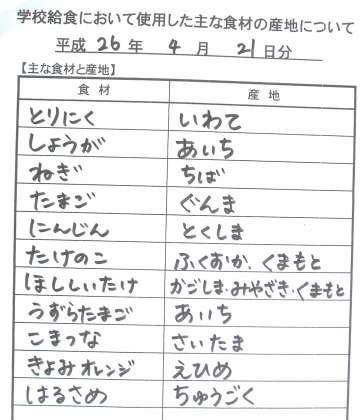 学校給食において使用した主な食材の産地について
平成 26 年 4 月 21 日分
【主な食材と産地】
食材 産地
とりにく いわて
しょうが あいち
ねぎ ちば
たまご ぐんま
にんじん とくしま
たけのこ ふくおか、くまもと
ほししいたけ かごしま・みやざき・くまもと
うずらたまご あいち
こまつな さいたま
きよみオレンジ えひめ
はるさめ ちゅうごく